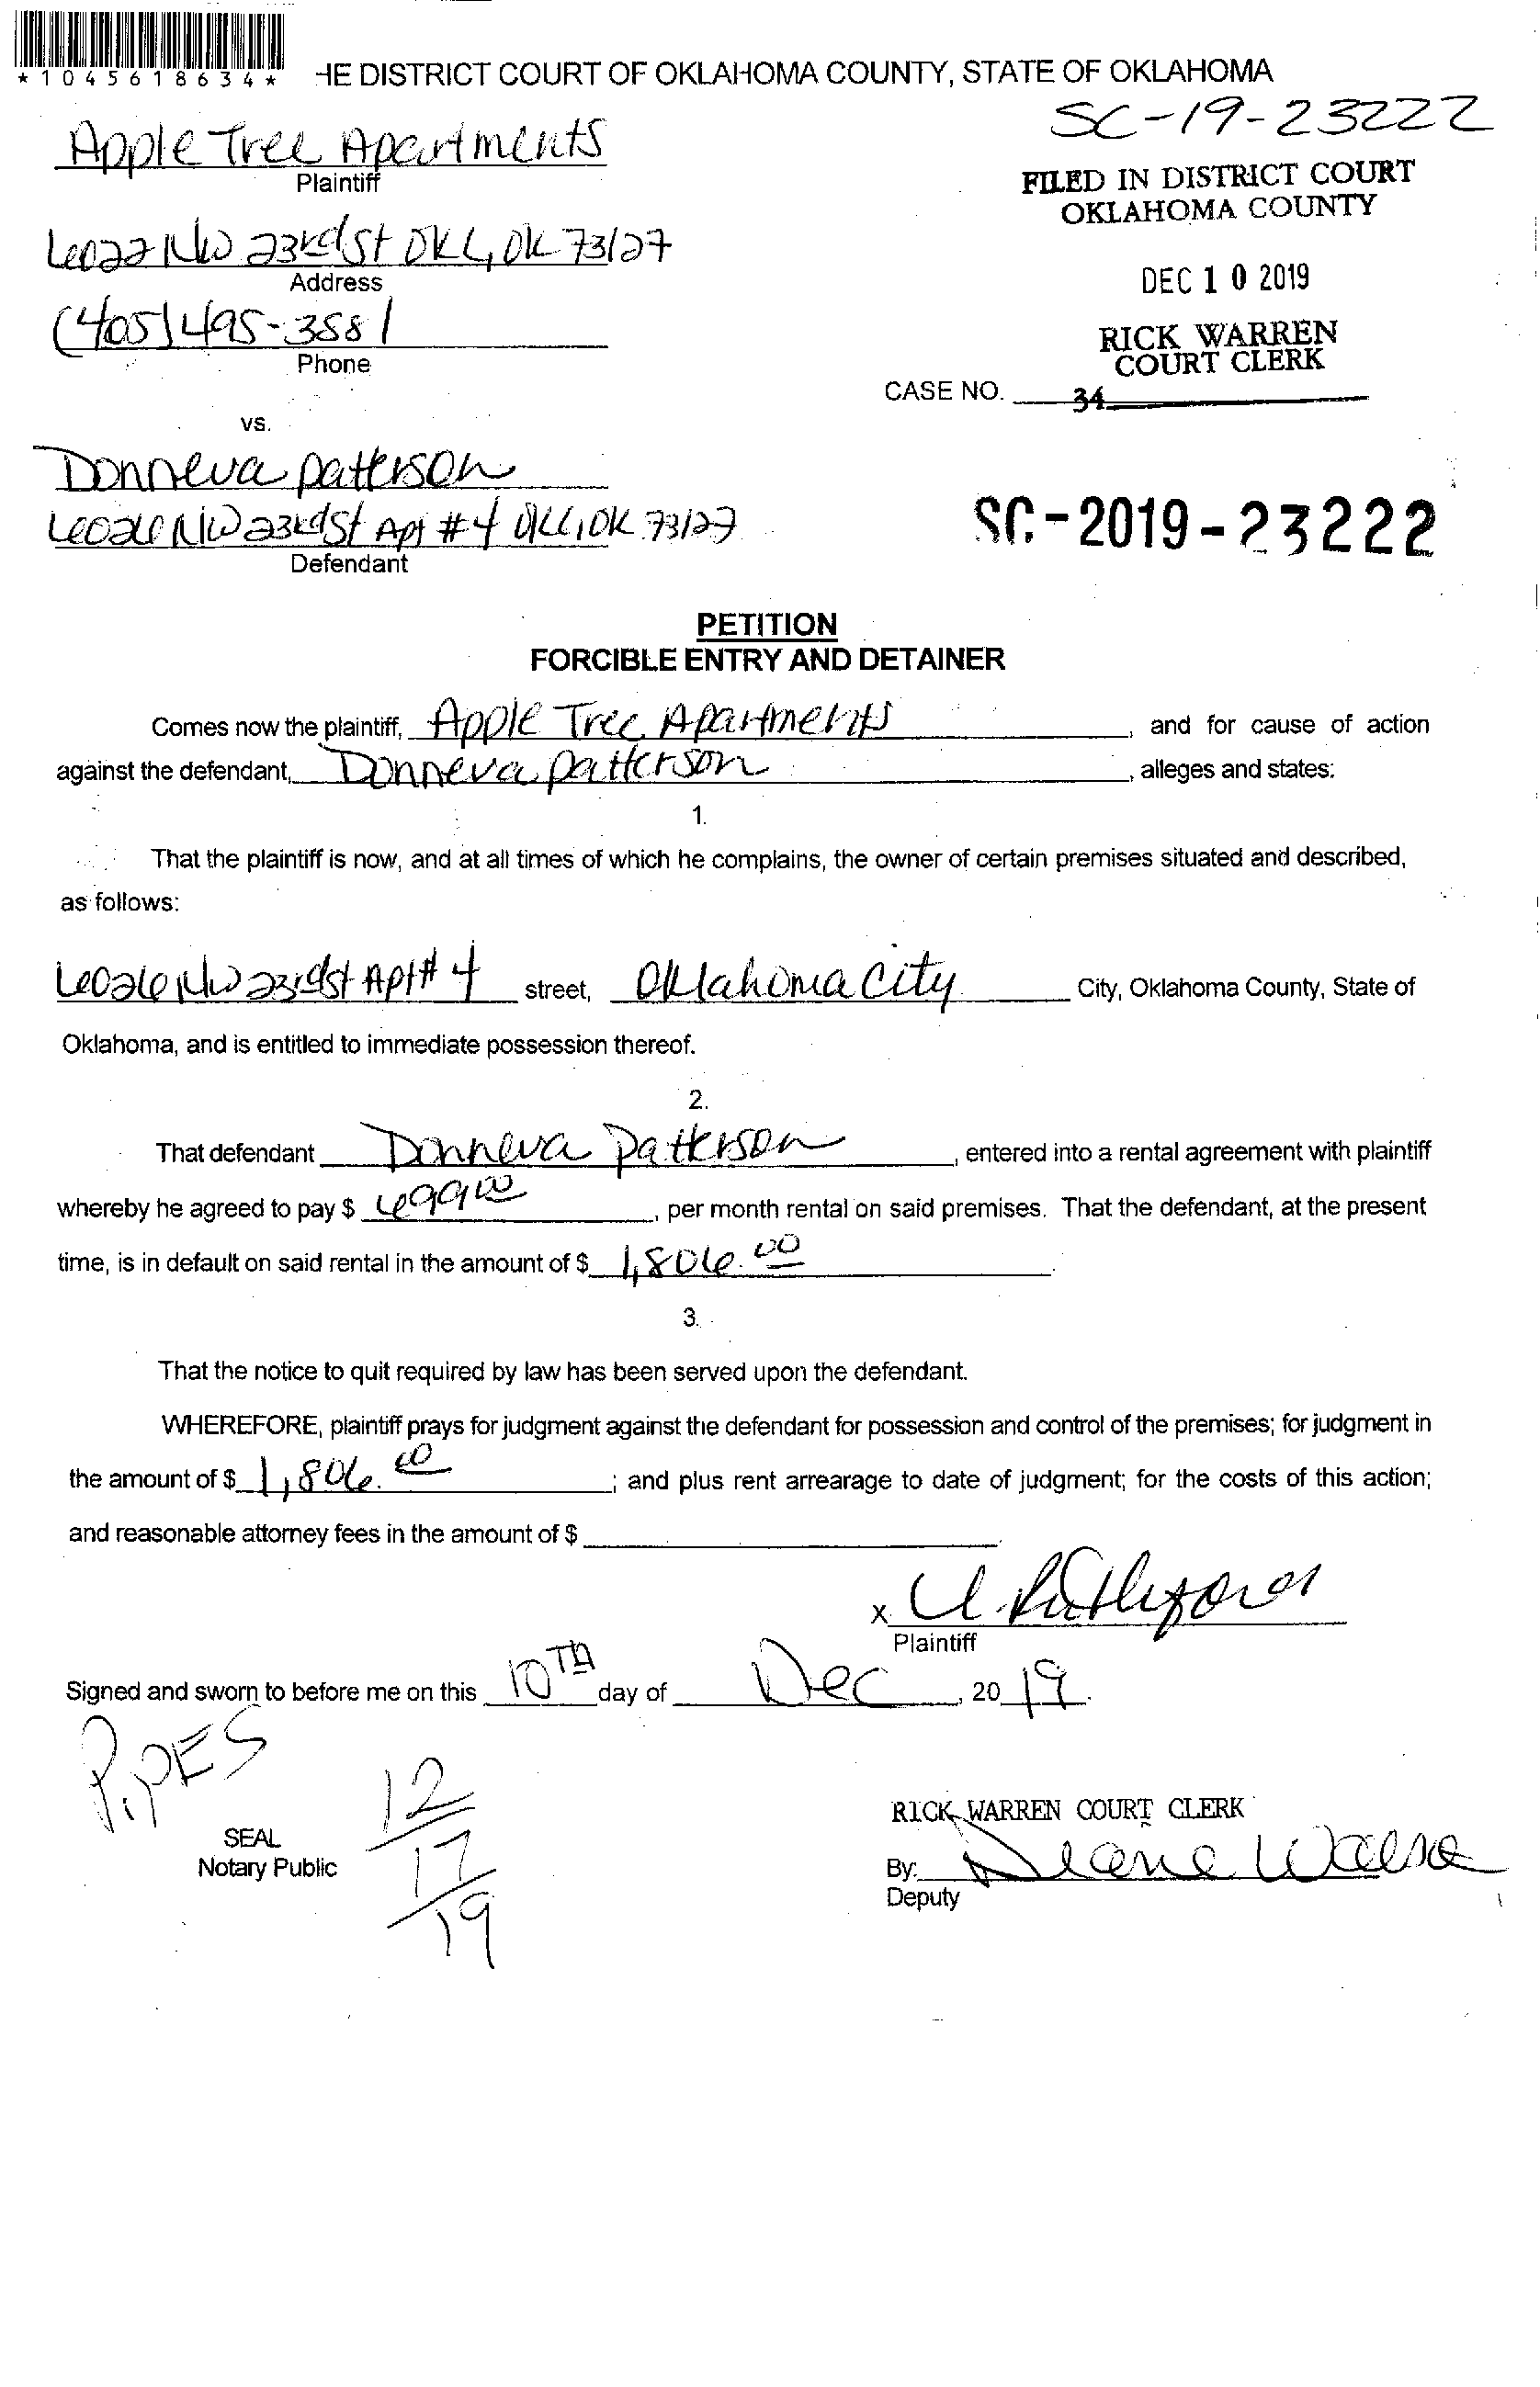 *1045618634*
HE DISTRICT COURT OF OKLAHOMA COUNTY, STATE OF OKLAHOMA
SC-19-23222
Apple Tree Apartments
Plaintiff
FILED IN DISTRICT COURT
OKLAHOMA COUNTY
6022 NW 23rd St OKC, OK 73127
Address
DEC 10 2019
(405) 495-3581
Phone
RICK WARREN
COURT CLERK
CASE NO. 34
vs.
Donneva Patterson
6026 NW 23rd St Apt #4 OKC, OK 73127
Defendant
SC-2019-23222
PETITION
FORCIBLE ENTRY AND DETAINER
Comes now the plaintiff, Apple Tree Apartments, and for cause of action
against the defendant, Donneva Patterson, alleges and states:
1.
That the plaintiff is now, and at all times of which he complains, the owner of certain premises situated and described,
as follows:
6026 NW 23rd St Apt# 4 street, Oklahoma City City, Oklahoma County, State of
Oklahoma, and is entitled to immediate possession thereof.
2.
That defendant Donneva Patterson, entered into a rental agreement with plaintiff
whereby he agreed to pay $ 699.00, per month rental on said premises. That the defendant, at the present
time, is in default on said rental in the amount of $ 1,806.00.
3.
That the notice to quit required by law has been served upon the defendant.
WHEREFORE, plaintiff prays for judgment against the defendant for possession and control of the premises; for judgment in
the amount of $ 1,806.00; and plus rent arrearage to date of judgment; for the costs of this action;
and reasonable attorney fees in the amount of $
x
Plaintiff
Signed and sworn to before me on this 10TH day of Dec, 2019.
PIPES
12/17/19
SEAL
Notary Public
RICK WARREN COURT CLERK
By:
Deputy